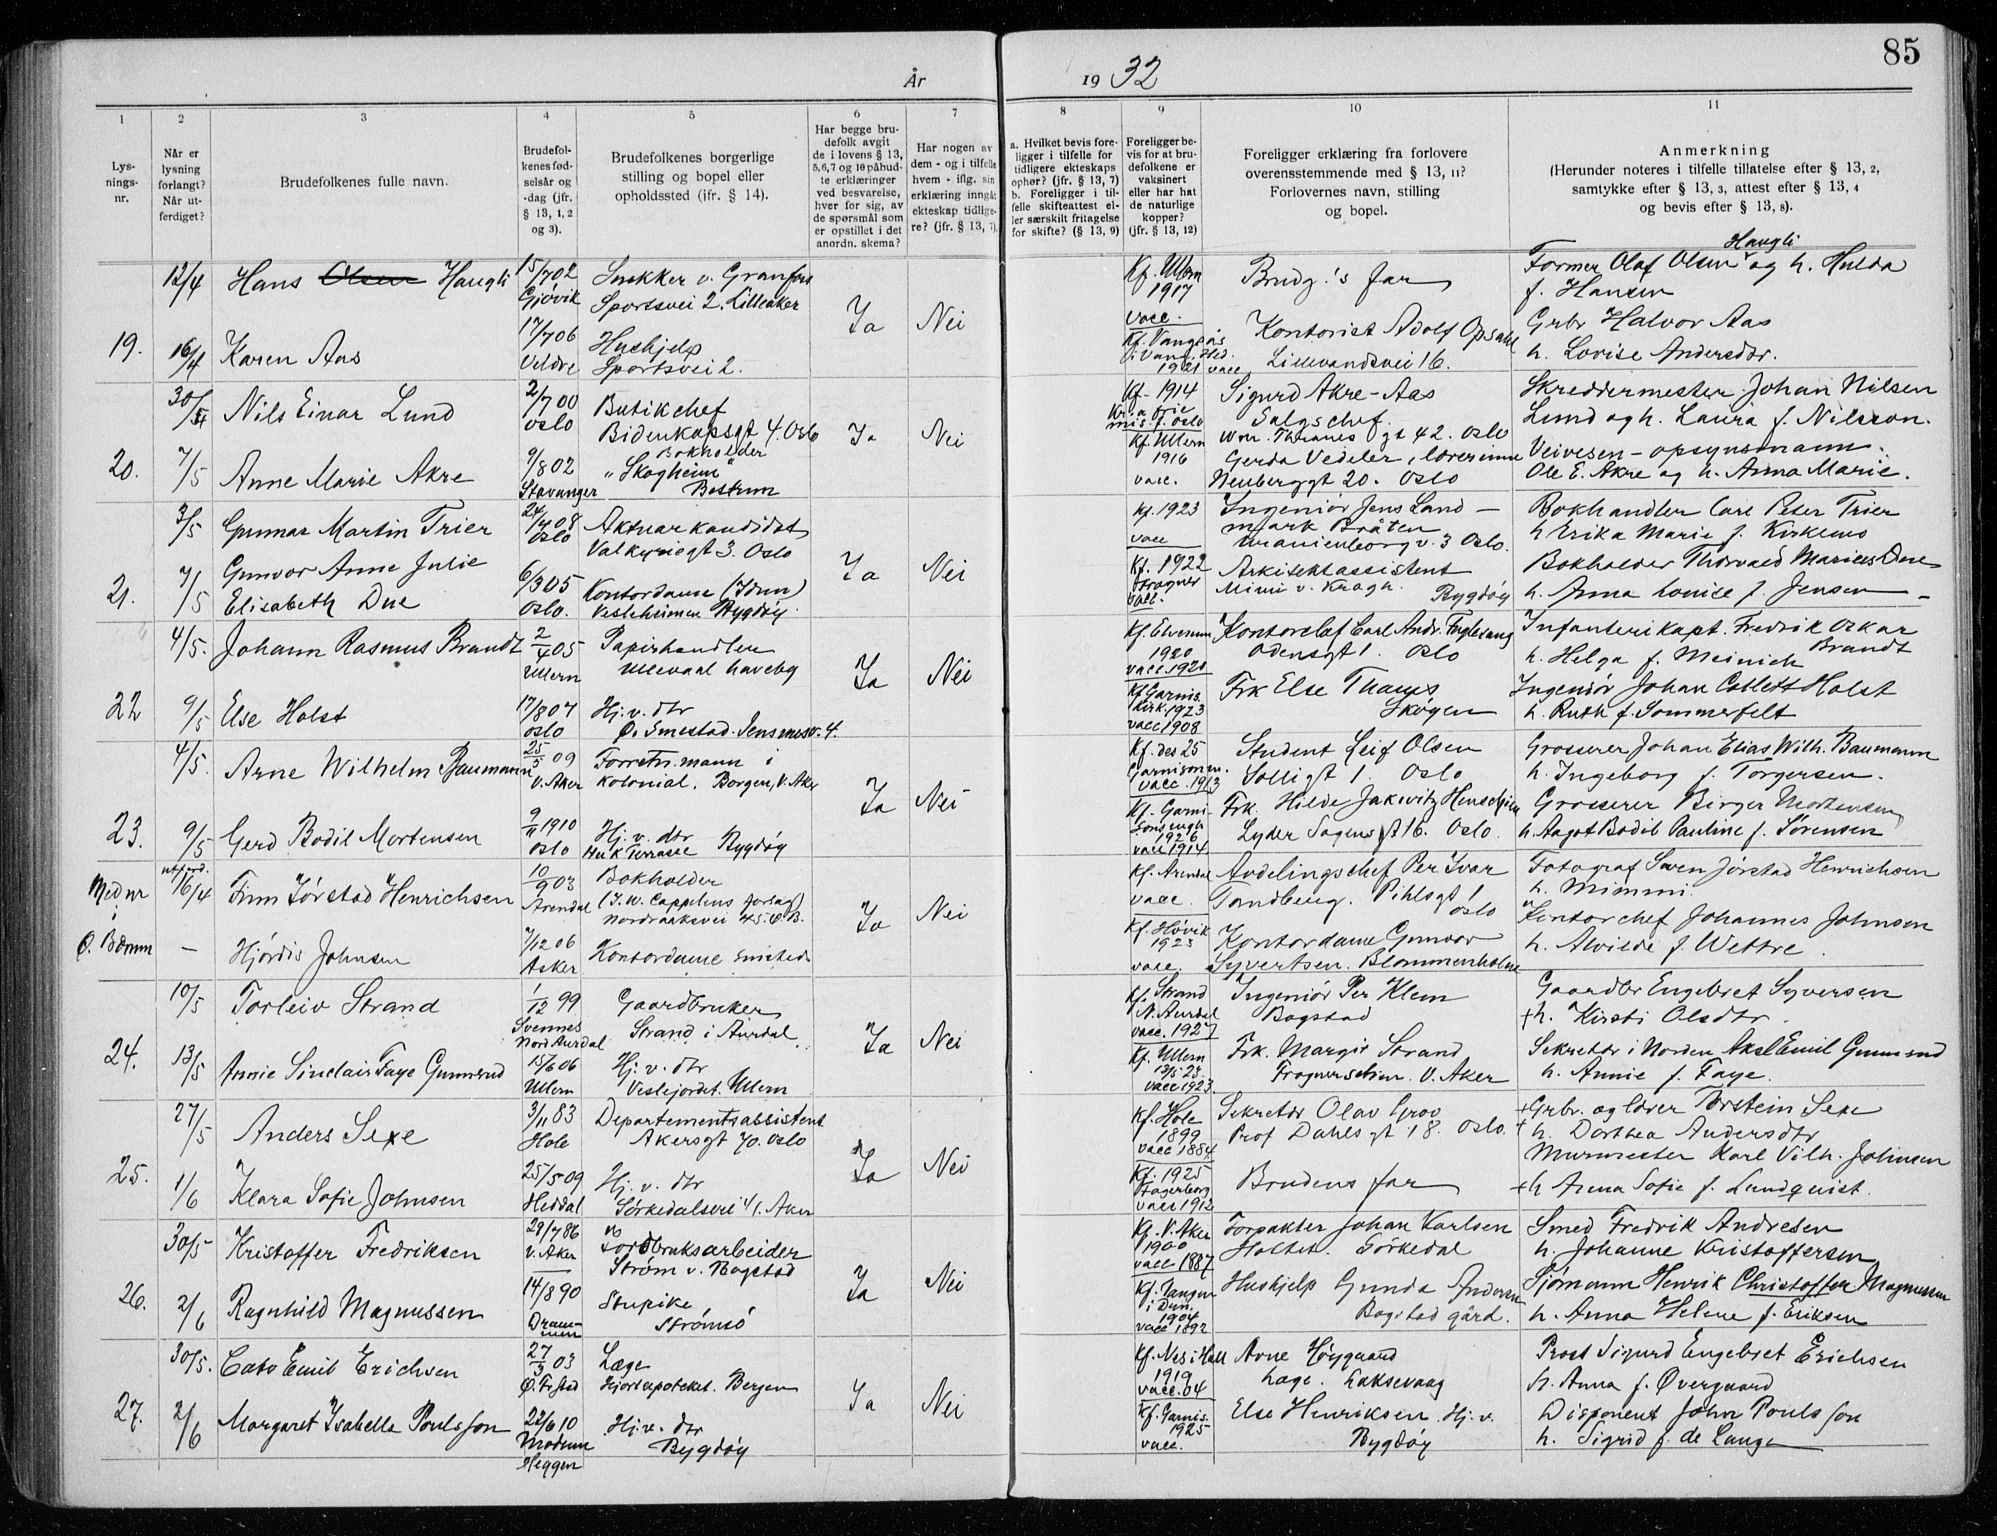 85
År 19 32
1 2 3 4 5 6 7 8 9 10 11
Lys-
nings-
nr.
Når er
lysning
forlangt?
Når ut-
ferdiget?
Brudefolkenes fulle navn.
Brudefol-
kenes fød-
selsår og
-dag (jfr.
§ 13, 1, 2
og 3).
Brudefolkenes borgerlige
stilling og bopel eller
opholdssted (ifr. § 14).
Har begge bru-
defolk avgit
de i lovens § 13,
5,6,7 og 10 påbud-
te erklæringer
ved besvarelse,
hver for sig, av
de spørsmål som
er opstillet i det
anordn. skema?
Har nogen av
dem - og i tilfelle
hvem - iflg. sin
erklæring inngåt
ekteskap tidlige-
re? (jfr. § 13, 7).
a. Hvilket bevis fore-
ligger i tilfelle for
tidligere ekteskaps
ophør? (jfr. § 13, 7)
b. Foreligger i til-
felle skifteattest el-
ler særskilt fritagelse
for skifte? (§ 13, 9)
Foreligger be-
vis for at bru-
defolkene er
vaksinert
eller har hat
de naturlige
kopper?
(jfr. § 13, 12)
Foreligger erklæring fra forlovere
overensstemmende med § 13, 11?
Forlovernes navn, stilling
og bopel.
Anmerkning
(Herunder noteres i tilfelle tillatelse efter § 13, 2,
samtykke efter § 13, 3, attest efter § 13, 4
og bevis efter § 13, 8).
12/4 Hans Olsen Haugli
15/7 02
Gjövik
Snekker v. Granfos
Sportsvei 2. Lilleaker
Ja Nei
Kf. Ullern
1917
vacc.
Brudg.'s far
Haugli
Former Olaf Olsen og h. Hulda
f. Hansen
19. 16/4 Karen Aas
17/7 06
Veldre
Hushjelp
Sportsvei 2.
Kf. Vangsås
i Vang, Hed.
1921 vacc
Kontorist Adolf Opsahl
Lillevandsvei 16.
Grbr Halvor Aas
h. Lovise Andersdtr.
30/4 Nils Einar Lund
2/7 00
Oslo
Butikchef
Bidenkapsgt 4. Oslo
Ja Nei
Kf. 1914
Sigurd Akre-Aas
Salgschef.
Wm. Thranes gt 42. Oslo
Skreddermester Johan Nilsen
Lund og h. Laura f. Nilsson.
20. 7/5 Anne Marie Akre
9/8 02
Stavanger
Bokholder
"Skogheim"
Bestum
Kf. Ullern
1916
vacc.
Gerda Vedeler, lærerinne
Neuberggt 20. Oslo
Veivesen-opsynsmann
Ole E. Akre og h. Anna Marie.
3/5 Gunnar Martin Trier
24/7 08
Oslo
Aktuarkandidat
Valkyriegt 3. Oslo
Ja Nei
Kf. 1923
vacc
Ingeniör Jens Land-
mark Bråten
Uranienborg v. 3 Oslo.
Bokhandler Carl Peter Trier
h Erika Marie f. Kirklems
21. 7/5 Gunvor Anne Julie
Elisabeth Due
6/3 05
Oslo.
Kontordame (Idun)
Vesleheimen Bygdöy.
Kf. 1922
Frogner
vacc.
Arkitektassistent
Mimi v. Kragh. Bygdöy
Bokholder Thorvald Marius Due
h. Anna Louise f. Jensen
4/5. Johann Rasmus Brandt
2/4 05
Ullern
Papirhandler
Ullevaal haveby
Ja Nei
Kf. Elverum
1920
vacc. 1920
Kontorchef Carl Andr. Fuglesang
Odensgt 1. Oslo
Infanterikapt. Fredrik Oskar
Brandt
h. Helga f. Meinich
22 9/5 Else Holst
17/8 07
Oslo
Hj. v. dtr
Ö. Smestad. Jensensv. 4.
Kf. Garnis.
kirk. 1923
vacc 1908
Frk Else Thams
Skøyen
Ingeniör Johan Collett Holst
h. Ruth f. Sommerfelt
4/5. Arne Wilhelm Baumann
25/5 09
V. Aker
Forretn.mann i
kolonial. Borgen, V. Aker
Ja Nei
Kf. des 25
Garnisonsm.
vacc. 1913
Student Leif Olsen
Solligt 1. Oslo
Grosserer Johan Elias Wilh. Baumann
h. Ingeborg f. Torgersen.
23. 9/5 Gerd Bodil Mortensen
9/11 1910
Oslo
Hj. v. dtr
Huk Terrasse Bygdöy
Kf. Garni-
1926
vacc 1914
Frk. Hilde Jakwitz Henschien
Lyder Sagens gt 16. Oslo.
Grosserer Birger Mortensen
h. Aagot Bodil Pauline f. Sörensen
Med nr
i
Ö. Bærum
utferd.
16/4 Finn Jörstad Henrichsen
10/9 03
Arendal
Bokholder
(J. W. Cappelens forlag)
Nordraaksvei 45. Ö. B.
Ja Nei
Kf. Arendal
vacc.
Avdelingschef Per Ivar
Tandberg. Pihlsgt 1
Oslo
Fotograf Sven Jörstad Henrichsen
h. Mimmi.
— Hjördis Johnsen
7/12 06
Asker
Kontordame smsteds
Kf. Hövik
1923
vacc.
Kontordame Gunvor
Syvertsen. Blommenholm
Kontorchef Johannes Johnsen
h. Alvilde f. Wettre.
10/5 Torleiv Strand
1/12 99
Svennes
Nord Aurdal
Gaardbruker
Strand i Aurdal
Ja Nei
Kf. Strand
N. Aurdal
vacc. 1927
Ingeniör Per Klem
Bogstad
Gaardbr Engebret Syversen
+ h. Kirsti Olsdtr.
24. 13/5 Annie Sinclair Faye Gunnerud
15/6 06
Ullern
Hj. v. dtr
Veslejordet. Ullern
Kf. Ullern
13/5 23
vacc 1923
Frk. Margit Strand
Frognerseteren. V. Aker
Sekretær i Norden Aksel Emil Gunnerud
h. Annie f. Faye.
27/5 Anders Sexe
3/11 83
Hole
Departementsassistent
Akersgt 70. Oslo
Ja Nei
Kf. Hole
1899
vacc 1884
Sekretær Olav Grov
Prof Dahlsgt 18. Oslo.
+ Grbr. og lærer Torstein Sexe
+ h. Dorthea Andersdtr
25. 1/6 Klara Sofie Johnsen
25/5 09
Heddal
Hj. v. dtr
Sørkedalsvei 41. Aker
Kf. 1925
Fagerborg
vacc 1912
Brudens far
Murmester Karl Vilh. Johnsen
+ h Anna Sofie f. Lundquist.
30/5 Kristoffer Fredriksen
29/7 86
V. Aker
Jordbruksarbeider
Ström v. Bogstad
Ja Nei
Kf. V. Aker
1900
vacc 1887
Forpakter Johan Karlsen
Holtet. Sörkedal
Smed Fredrik Andresen
h. Johanne Kristoffersen
26. 2/6 Ragnhild Magnussen
14/8 90
Dram-
men
Stupike
Strömsö
Kf. Tangen
i Dm.
1904
vacc 1892
Hushjelp Gunda Andersen
Bogstad gård.
Sjömann Henrik Christoffer Magnussen
h. Anna Helene f. Eriksen
30/5. Cato Emil Erichsen
27/3 03
Læge
Hjorteapoteket. Bergen
Ja Nei
Kf. Nes i Hall
1919
vacc. 04
Arne Höygaard
Læge. Laksevaag
Prost Sigurd Engebret Erichsen
h. Anna f. Övergaard
27. 2/6 Margaret Isabella Poulsson
22/6 10
Modum
Heggen
Hj. v. dtr
Bygdöy
Kf. Garnis.
1925
vacc.
Else Henriksen. Hj. v.
Bygdöy
Disponent John Poulsson
h. Sigrid f. de Lange